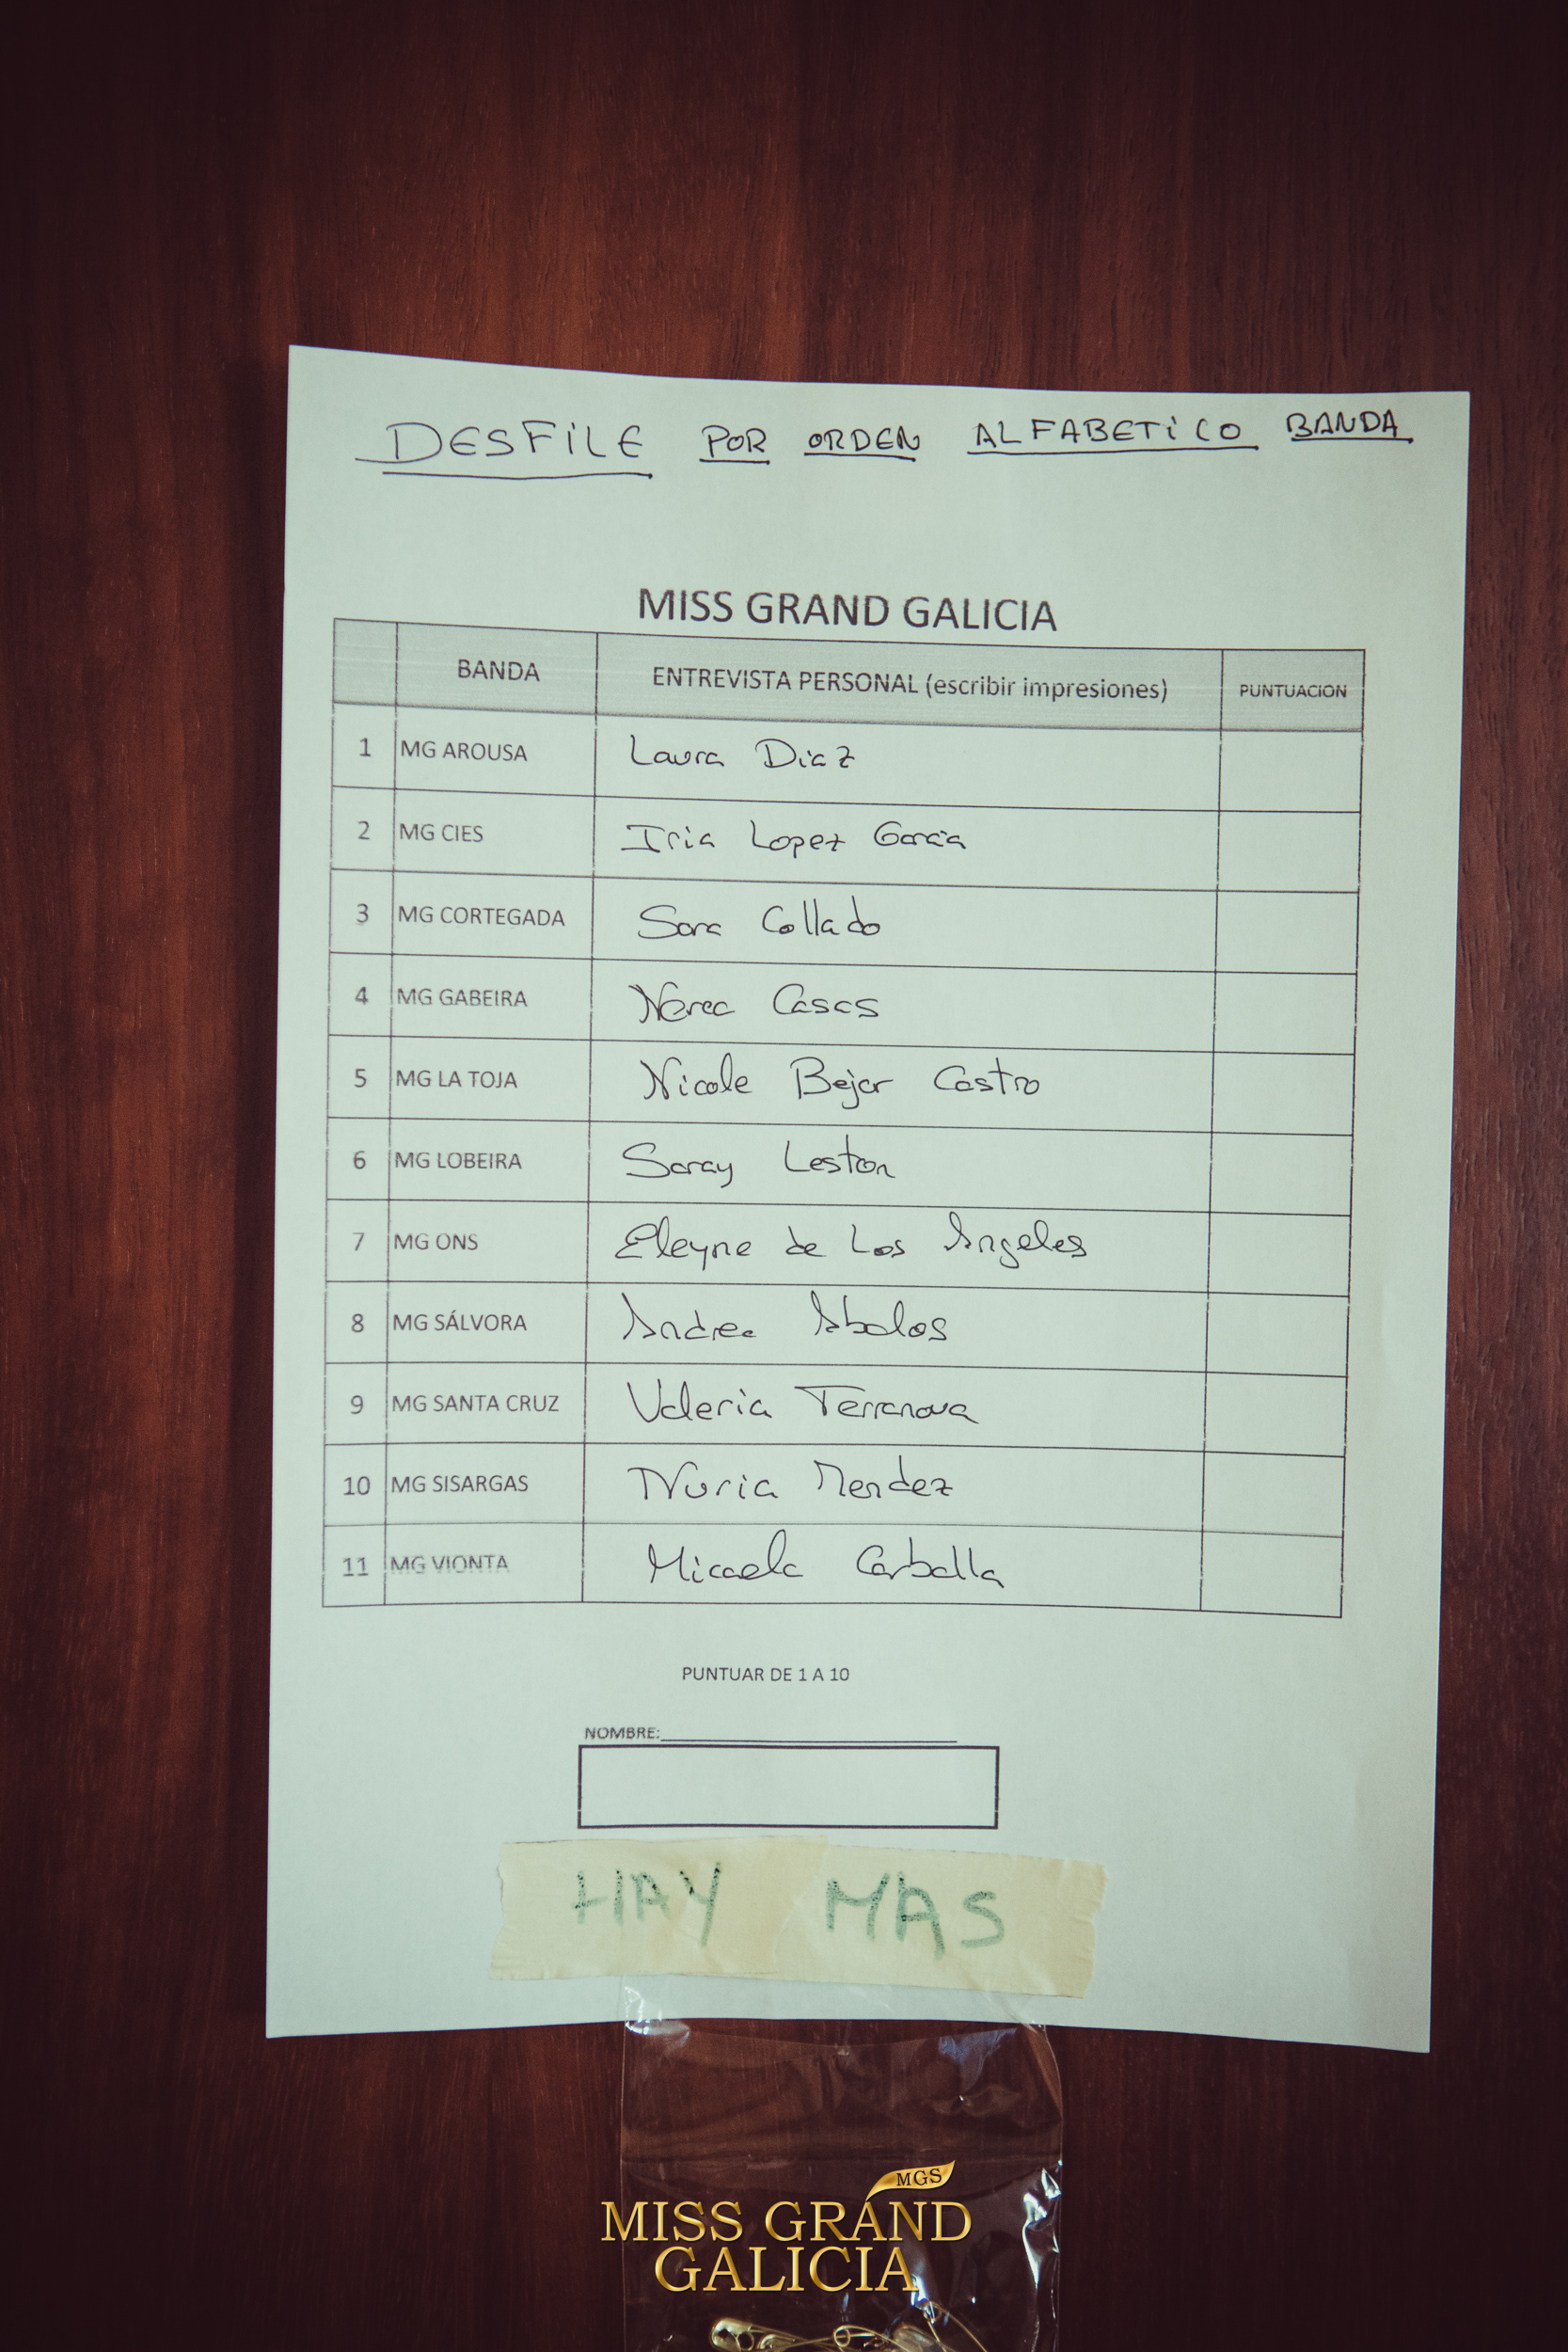 DESFILE POR ORDEN ALFABETICO BANDA
MISS GRAND GALICIA
BANDA ENTREVISTA PERSONAL (escribir impresiones) PUNTUACION
1 MG AROUSA Laura Diaz
2 MG CIES Iria Lopez Garcia
3 MG CORTEGADA Sara Collado
4 MG GABEIRA Nerea Casas
5 MG LA TOJA Nicole Bejar Castro
6 MG LOBEIRA Saray Leston
7 MG ONS Eleyne de Los Angeles
8 MG SÁLVORA Andrea Abalos
9 MG SANTA CRUZ Valeria Terranova
10 MG SISARGAS Nuria Mendez
11 MG VIONTA Micaela Carballa
PUNTUAR DE 1 A 10
NOMBRE:
HAY MAS
MGS
MISS GRAND
GALICIA